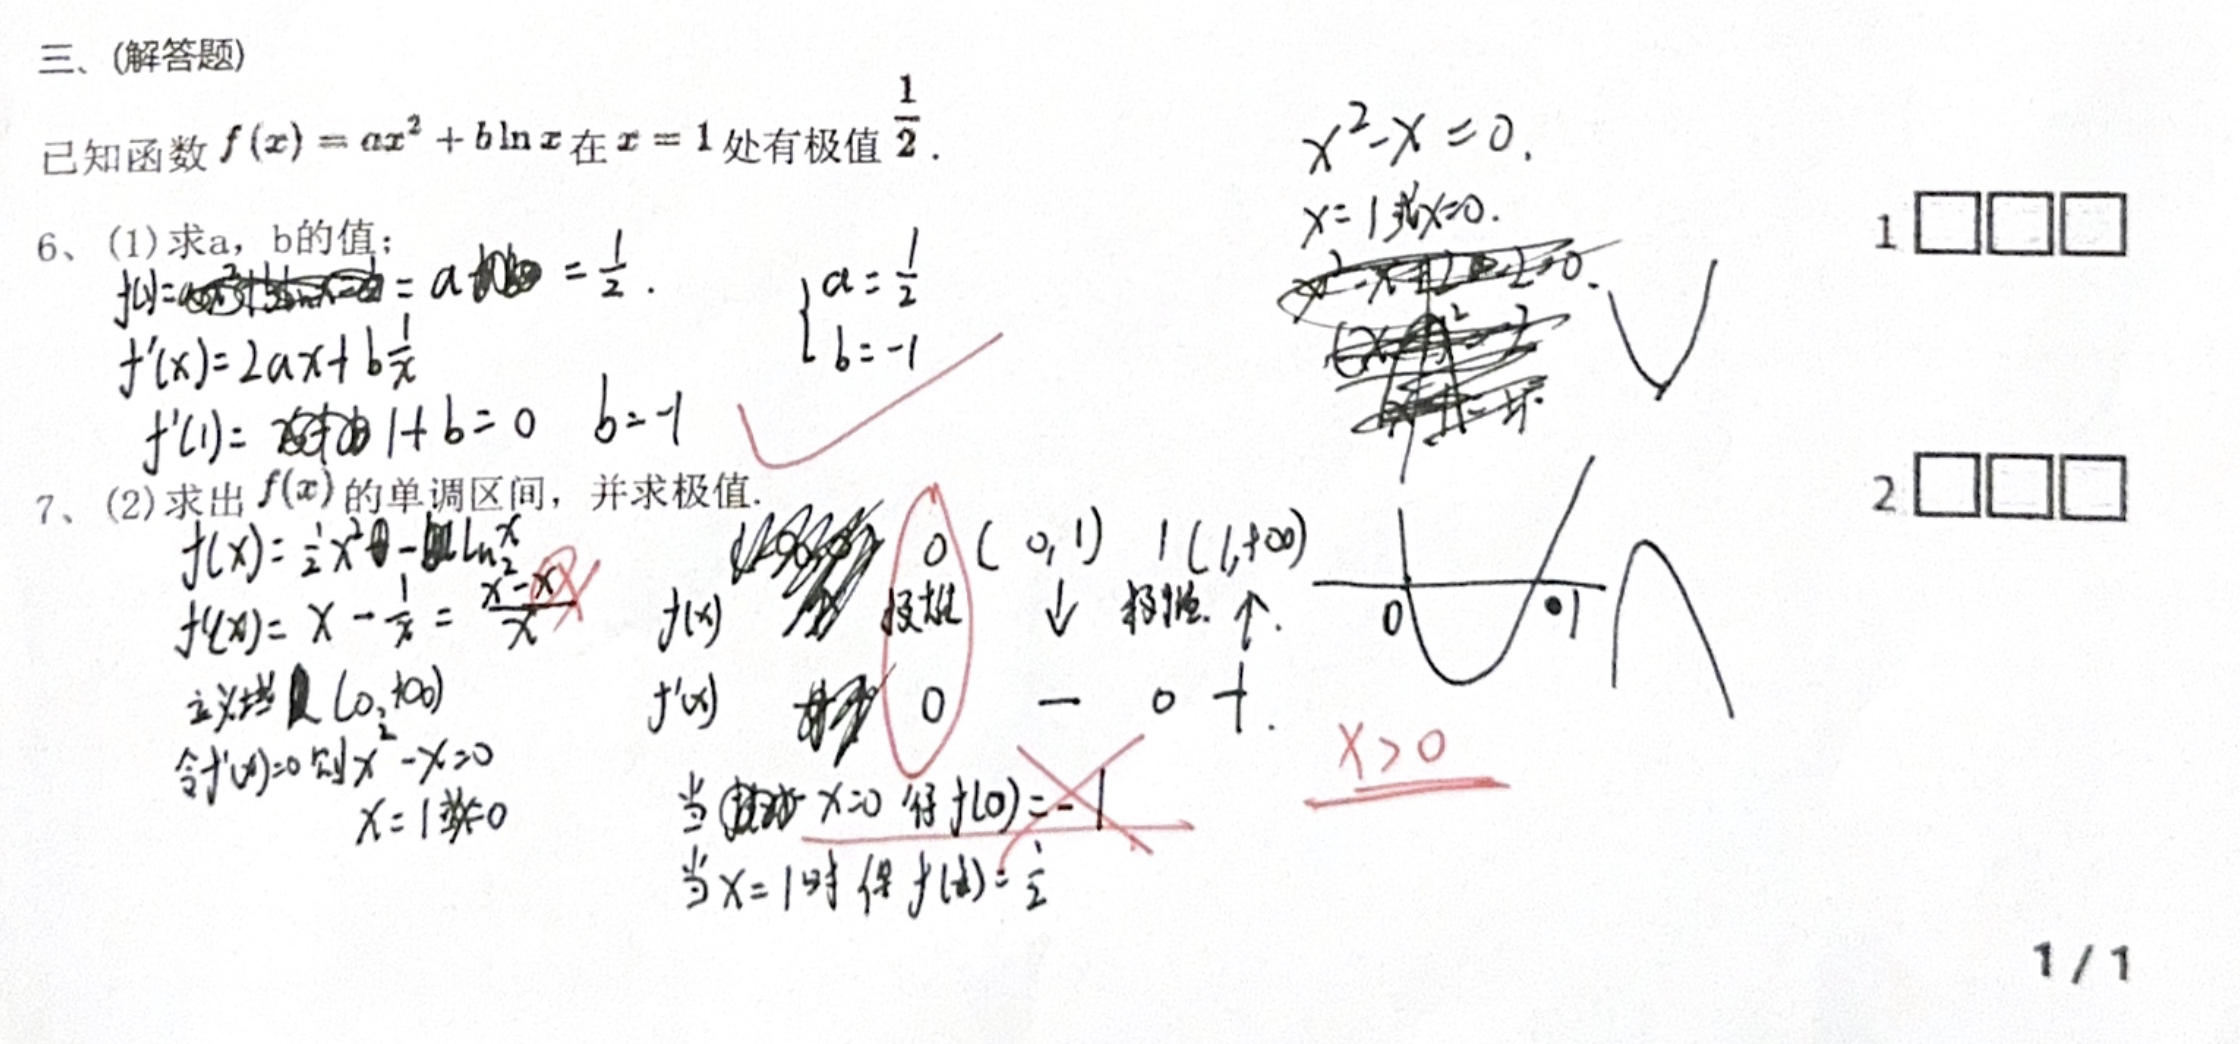 三、(解答题)
已知函数 f(x) = ax² + b ln x 在 x = 1 处有极值 1/2 .
6、(1)求a，b的值；
f(1)= = a = 1/2 .
f'(x)=2ax+b 1/x
f'(1)= 1+b=0 b=-1
{ a=1/2
b=-1
7、(2)求出 f(x) 的单调区间，并求极值.
f(x)= 1/2 x² - ln x
f'(x)= x - 1/x = (x²-x)/x
定义域 (0,+∞)
令f'(x)=0 则x²-x=0
x=1或x=0
0 (0,1) 1 (1,+∞)
f(x) 极大值 ↓ 极值 ↑.
f'(x) 0 - 0 +.
当 x=0 得f(0)=-1
当x=1时 得f( )=1/2
x²-x=0.
x=1或x=0.
0 1
x>0
1
2
1 / 1